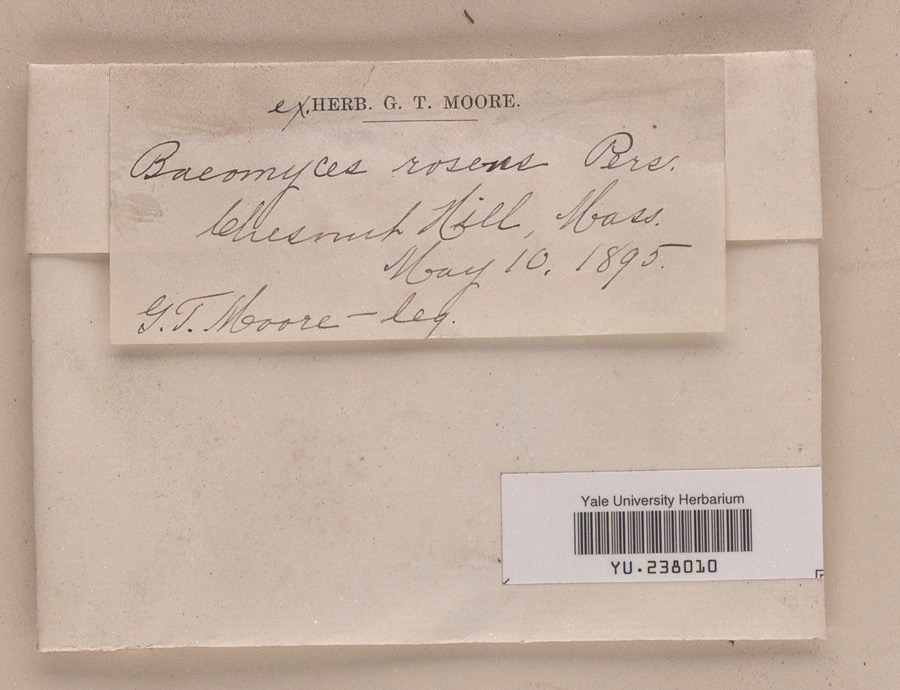 ex. HERB. G. T. MOORE.
Baeomyces roseus Pers.
Chesnut Hill, Mass.
May 10. 1895.
G. T. Moore – leg.
Yale University Herbarium
YU.238010